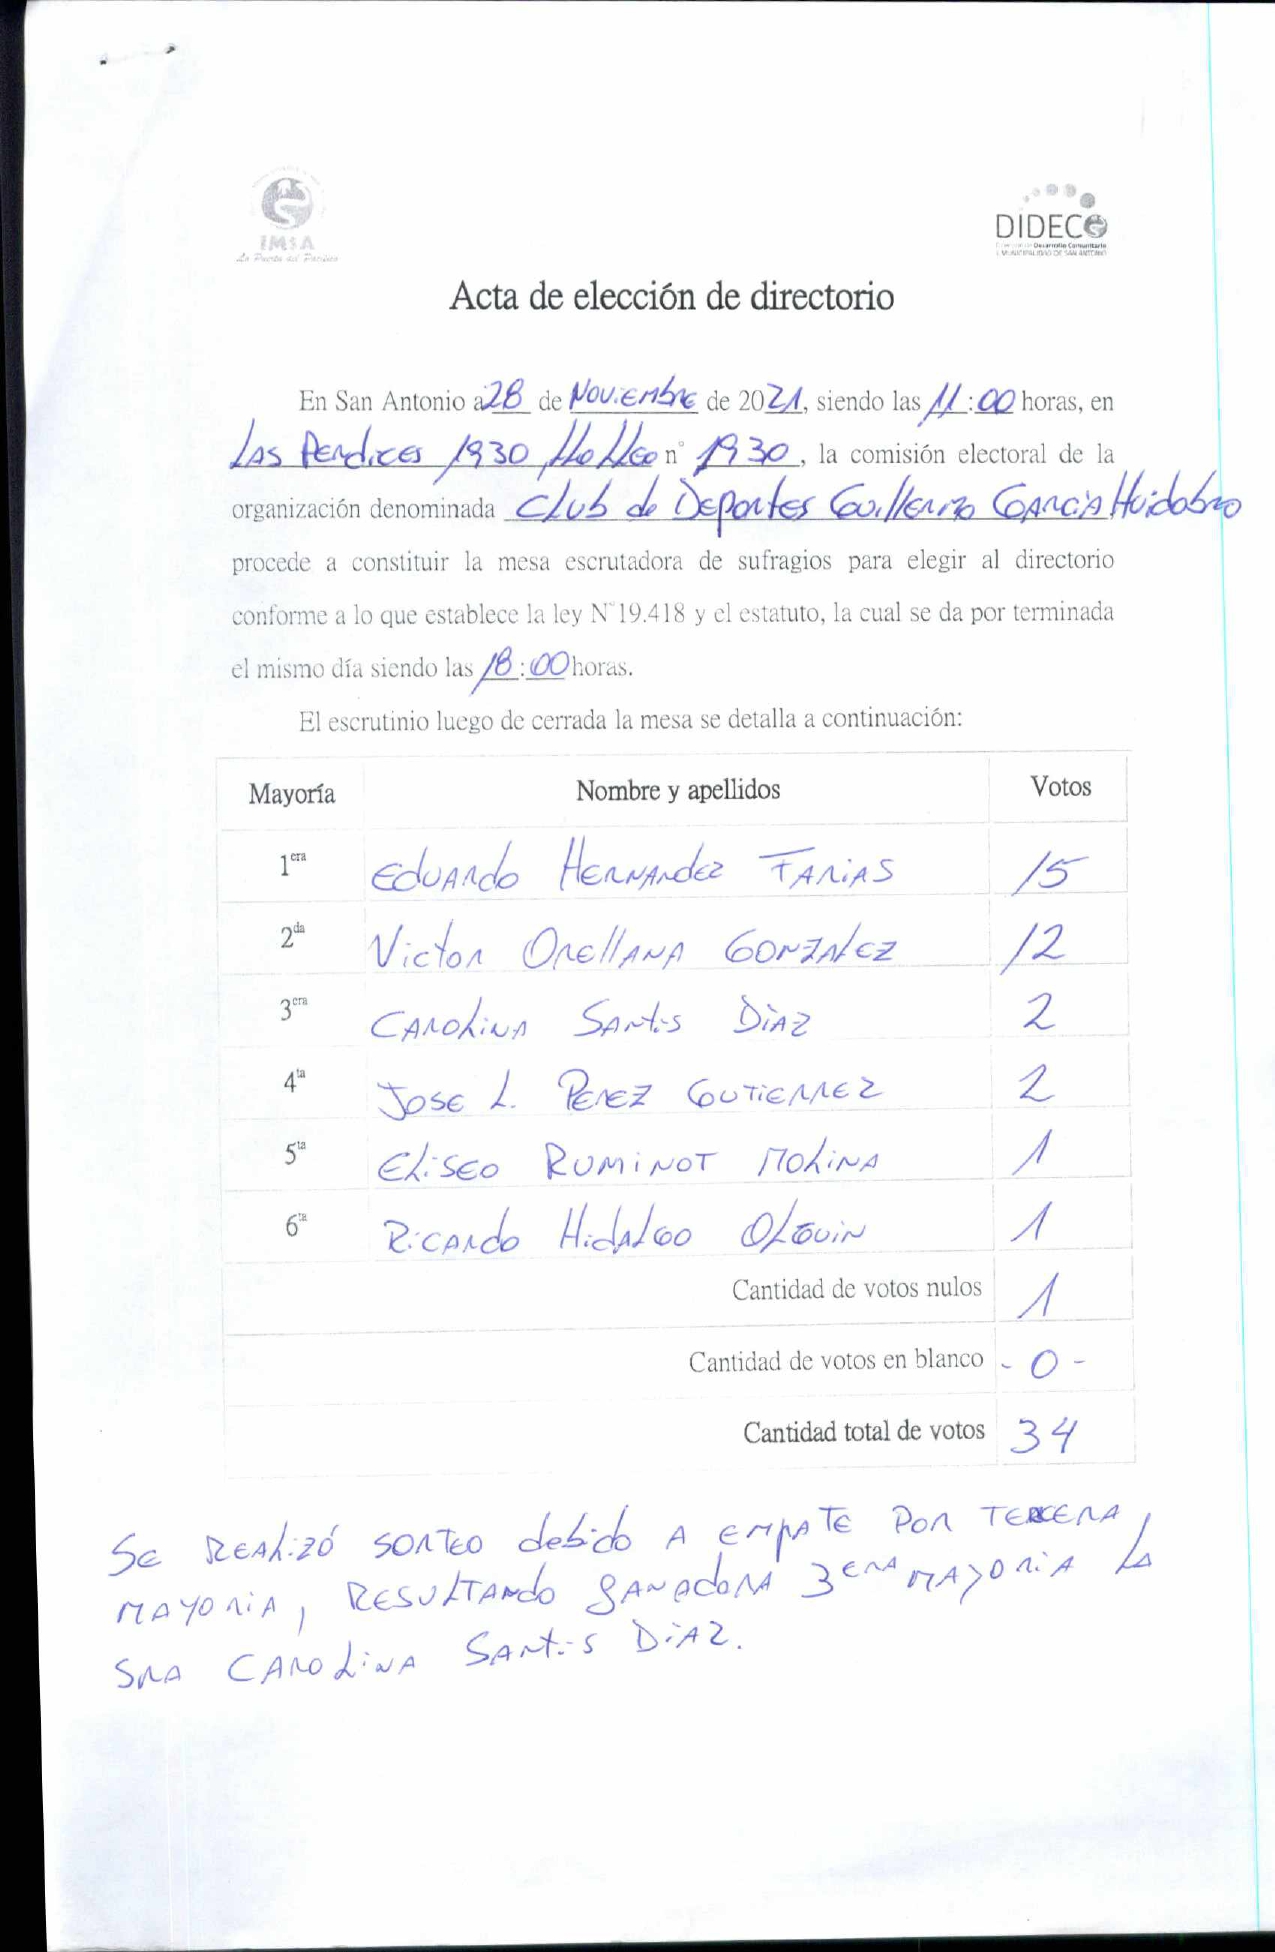 IMSA
La Puerta del Pacífico
DIDECO
Desarrollo Comunitario
I. MUNICIPALIDAD DE SAN ANTONIO
Acta de elección de directorio
En San Antonio a 28 de Noviembre de 2021, siendo las 11:00 horas, en
Las Perdices 1930 Llolleo n° 1930, la comisión electoral de la
organización denominada Club de Deportes Guillermo García Huidobro
procede a constituir la mesa escrutadora de sufragios para elegir al directorio
conforme a lo que establece la ley N°19.418 y el estatuto, la cual se da por terminada
el mismo día siendo las 18:00 horas.
El escrutinio luego de cerrada la mesa se detalla a continuación:
Mayoría Nombre y apellidos Votos
1era Eduardo Hernandez Farias 15
2da Victor Orellana Gonzalez 12
3era Carolina Santis Diaz 2
4ta Jose L. Perez Gutierrez 2
5ta Eliseo Ruminot Molina 1
6ta Ricardo Hidalgo Olguin 1
Cantidad de votos nulos 1
Cantidad de votos en blanco - 0 -
Cantidad total de votos 34
Se realizó sorteo debido a empate por tercera
mayoria, resultando ganadora 3era mayoria la
Sra Carolina Santis Diaz.